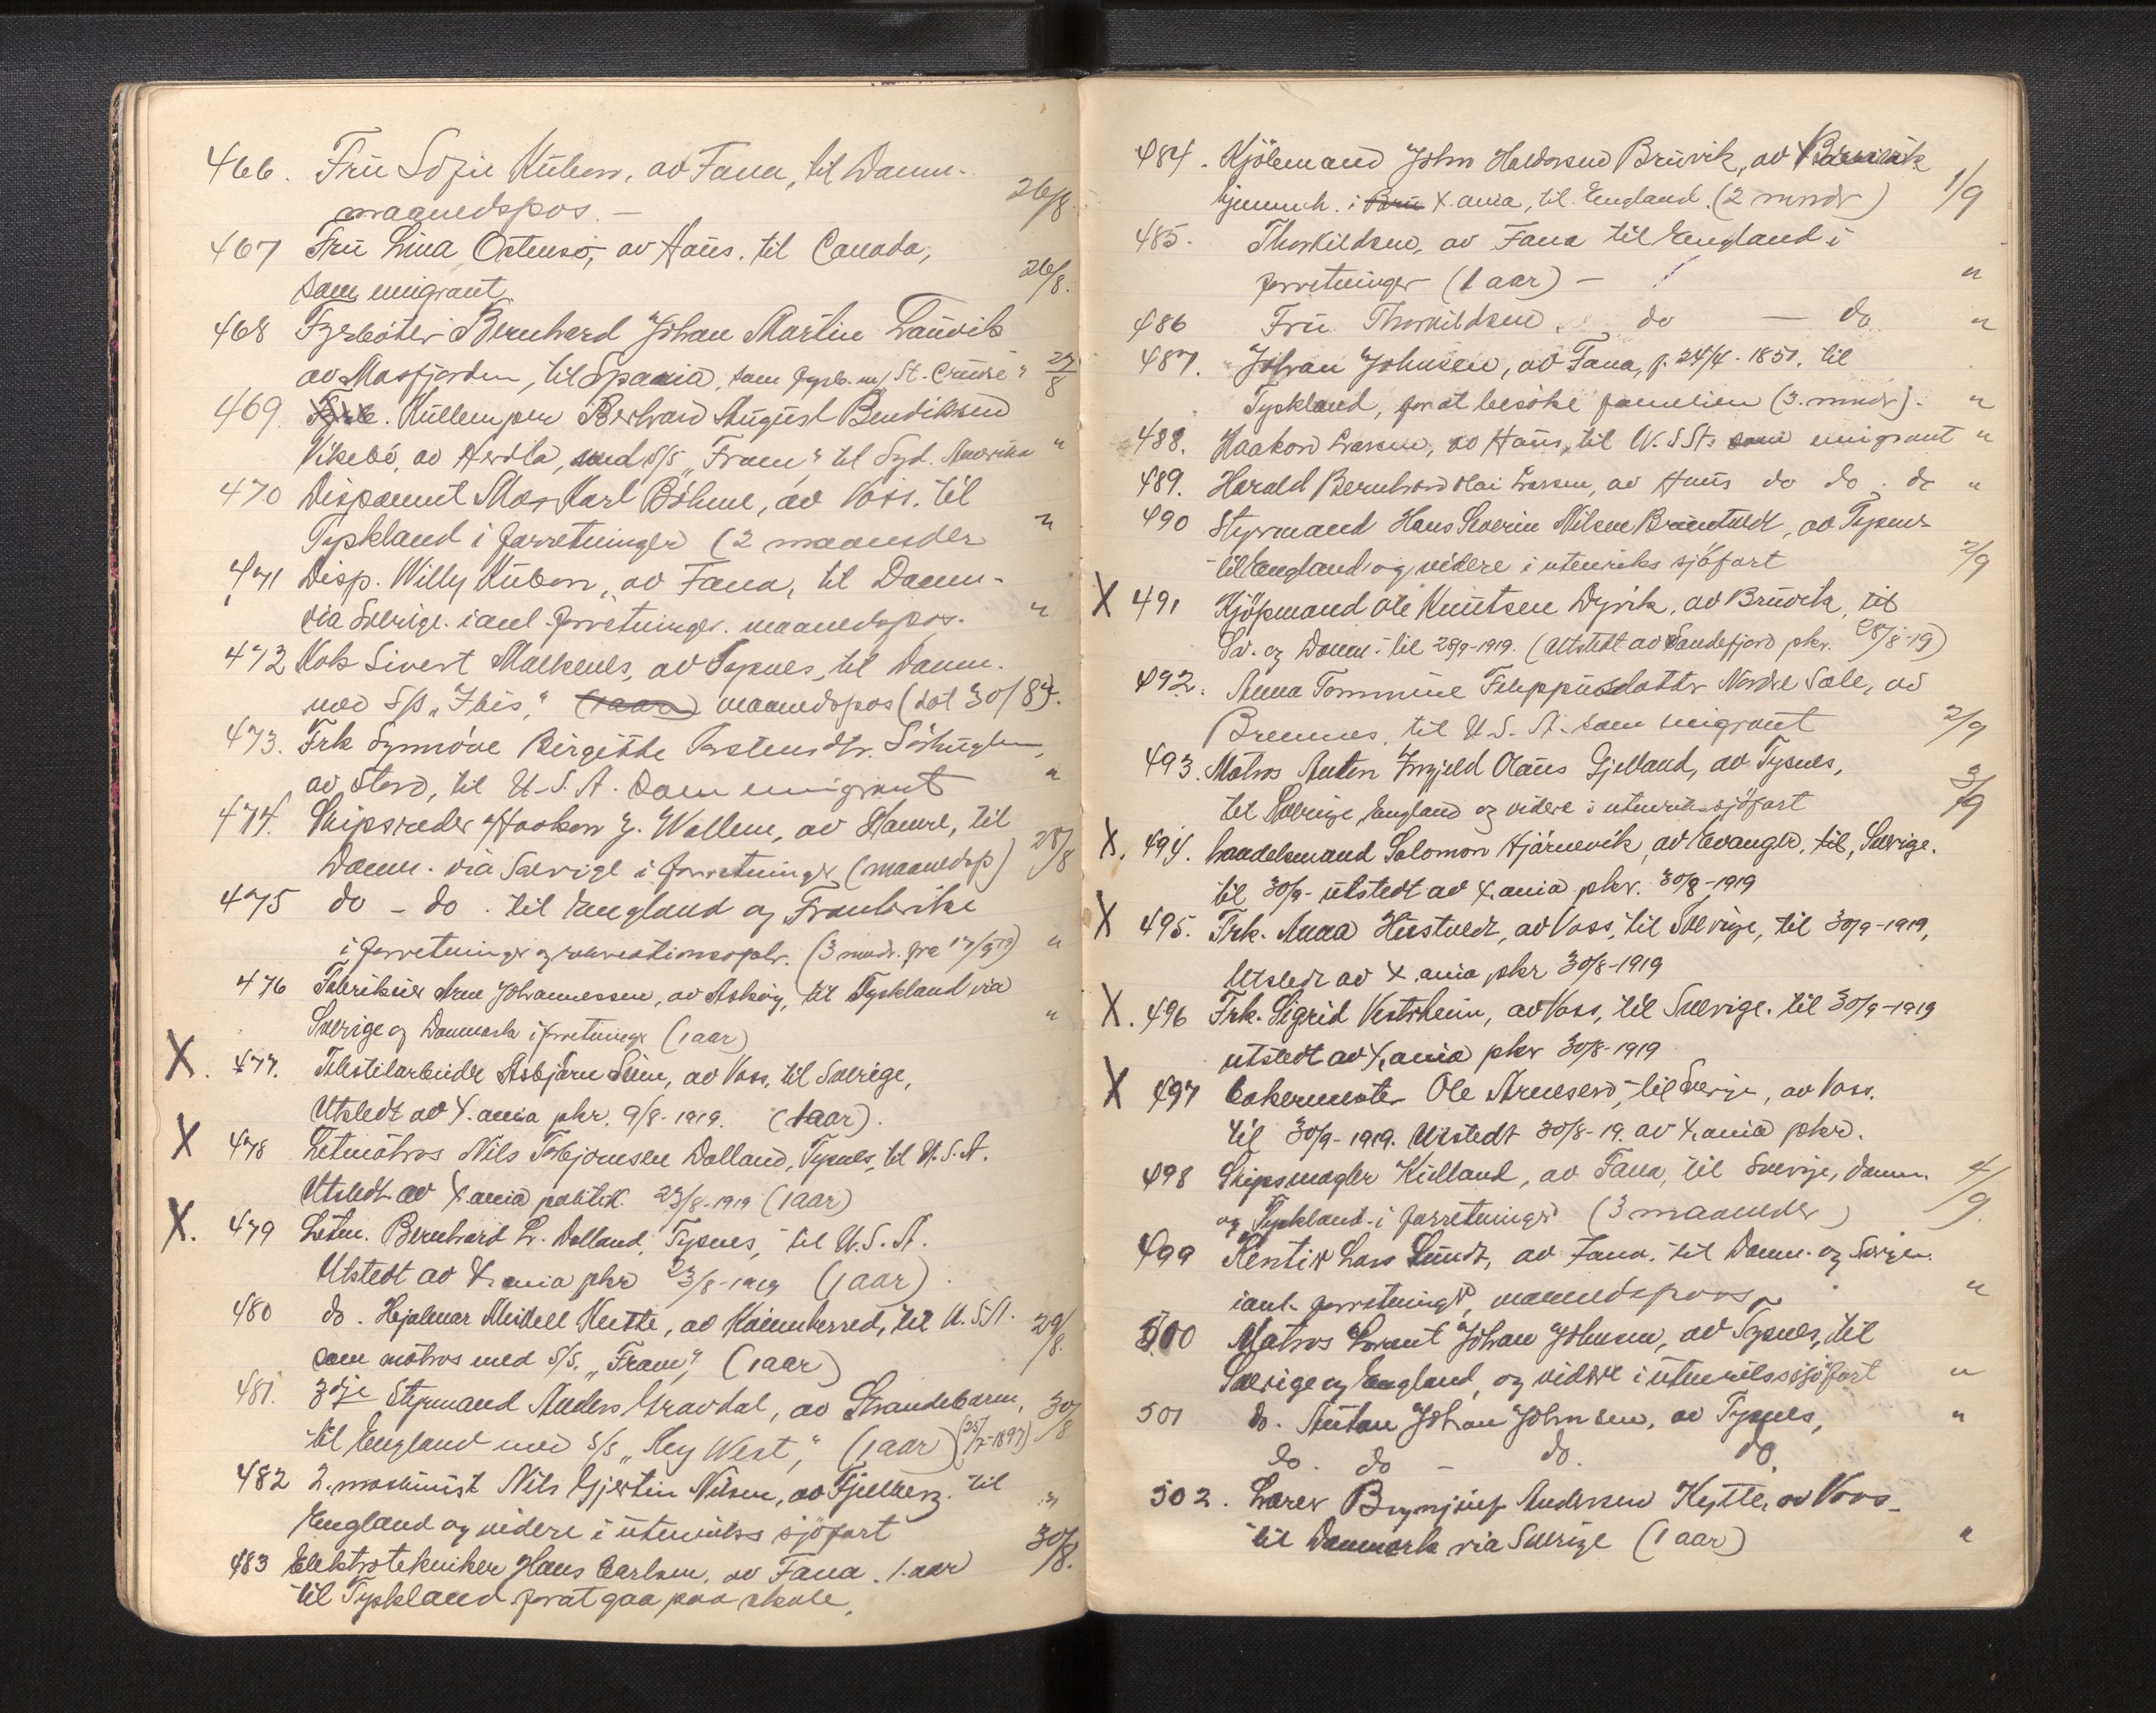 466. Fru Sofie Kuben, av Fana, til Danm.
maanedspos. — 26/8
467 Fru Lina Ostensö, av Haus. til Canada,
som emigrant. 26/8.
468 Fyrböter Bernhard Johan Martin Lauvik
av Masfjorden, til Spania, som fyrb. m/ St. " 27/8
469. Kullemper Bernhard August Bendiksen
Vikebö, av Herdla, med S/S "Fram" til Syd. Amerika "
470 Disponent Max Karl Böhme, av Voss. til
Tyskland i forretninger (2 maaneder "
471 Disp. Willy Kuben, av Fana, til Danm-
via Sverige. i anl. forretninger. maanedspos. "
472 Kok Sivert Malkenes, av Tysnes, til Danm.
med S/S "Ibis," (1 aar) maanedspos (dat 30/8).
473. Frk Synnöve Birgitte
av Stord, til U.S.A. som emigrant "
474. Skipsreder Haakon J. Wallem, av Hamre, til
Danm. via Sverige i forretninger (maanedsp) 28/8
475 do - do. til England og Frankrike
i forretninger og rekreationsoph. (3 mndr. fra 17/9 19) "
476 Fabrikeier Arne Johannessen, av Askøy, til Tyskland via
Sverige og Danmark i forretninger (1 aar) "
X. 477. Tekstilarbeider Asbjørn Lien, av Voss, til Sverige,
Utstedt av X.ania pkr. 9/8-1919. (1 aar).
X 478 Letmatros Nils Torbjornsen Dalland, Tysnes, til U.S.A.
Utstedt av X.ania politik. 23/8-1919 (1 aar)
X. 479 Letm. Bernhard L. Dalland, Tysnes, til U.S.A.
Utstedt av X.ania pkr 23/8-1919 (1 aar).
480 do. Hjalmar Meidell, av Kvinnherred, til U.S.A. 29/8.
som matros med S/S. "Fram", (1 aar)
481. 3dje Styrmand Anders Gravdal, av Strandebarm, 30/8
til England med S/S "Key West", (1 aar) (25/7-1897)
482 2. maskinist Nils Gjertin Nilsen, av Fjelberg. til "
England og videre i utenriks sjöfart
483 Elektrotekniker Hans Carlsen, av Fana. 1. aar 30/8.
til Tyskland for at gaa paa skole.
484. Kjölemand John Haldorsen Bruvik, av Bruvik
hjemmeh. i X.ania, til England. (2 mndr) 1/9
485. Thorkildsen, av Fana til England i
forretninger (1 aar) — "
486 Fru Thorkildsen, do — do "
487. Johan Johnsen, av Fana, f. 24/4-1851. til
Tyskland, for at besöke familien (3. mndr). "
488. Haakon Larsen, av Haus, til U.S.St. som emigrant "
489. Harald Bernhard Olai Larsen, av Haus do do. do "
490 Styrmand Hans Severin Nilsen, av Tysnes
til England og videre i utenriks sjöfart 2/9
X 491 Kjöpmand Ole Knutsen Dyvik, av Bruvik, til
Sv. og Danm. til 28/9-1919. (Utstedt av Sandefjord pkr. 28/8-19)
492. Anna Tommine Filippusdatter Nordre Sele, av
Bremnes, til U.S.A. som emigrant 2/9
493. Matros Anton Ingjeld Olaus Gjelland, av Tysnes,
til Sverige, England og videre i utenriks sjöfart 3/9
X. 494. handelsmand Salomon Hjärnevik, av Evanger, til, Sverige.
til 30/9- utstedt av X.ania pkr. 30/8-1919
X 495. Frk. Anna Hustvedt, av Voss, til Sverige, til 30/9-1919,
Utstedt av X.ania pkr 30/8-1919
X. 496 Frk. Sigrid Vestrheim, av Voss, til Sverige. til 30/9-1919
utstedt av X.ania pkr 30/8-1919
X 497 bakermester Ole Arnesen, til Sverige, av Voss.
til 30/9-1919. Utstedt 30/8-19. av X.ania pkr.
498 Skipsmægler Kielland, av Fana, til Sverige, Danm. 4/9.
og Tyskland i forretninger (3 maaneder)
499 Rentier Lars Lundt, av Fana. til Danm. og Sverige.
i anl. forretninger, maanedspass. "
500 Matros Lorent Johan Johnsen, av Tysnes, til
Sverige og England, og videre i utenriks sjöfart "
501 do. Anton Johan Johnsen, av Tysnes, "
do. do — do. do.
502. Lærer Brynjulf Andersen Hytte, av Voss-
til Danmark via Sverige (1 aar) "